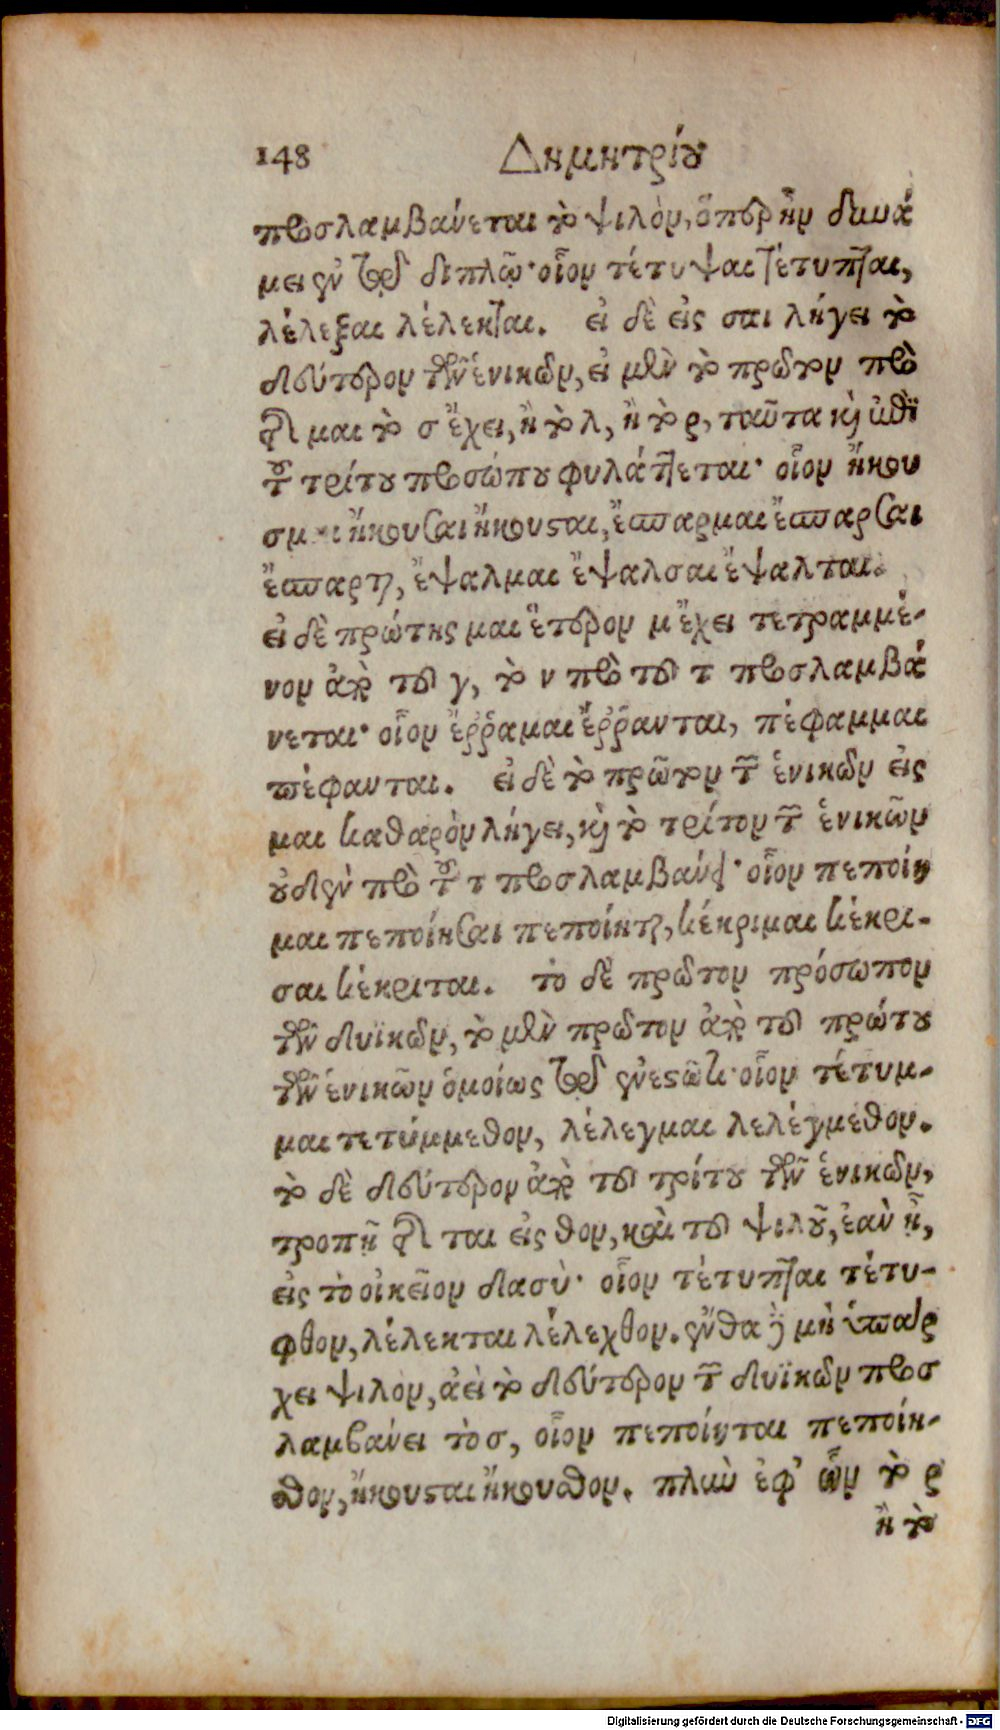 148 Δημητρίου
προσλαμβάνεται τὸ ψιλὸν, ὅπερ ἦν δυνά
μει ἐν τῷ διπλῷ· οἷον τέτυψαι τέτυπται,
λέλεξαι λέλεκται. εἰ δὲ εἰς σαι λήγει τὸ
δεύτερον τῶν ἑνικῶν, εἰ μὲν τὸ πρῶτον πρὸ
τῆς μαι τὸ σ ἔχει, ἢ τὸ λ, ἢ τὸ ρ, ταῦτα καὶ ἐπὶ
τοῦ τρίτου προσώπου φυλάττεται· οἷον ἤκου
σμαι ἤκουσαι ἤκουσται, ἔσπαρμαι ἔσπαρσαι
ἔσπαρται, ἔψαλμαι ἔψαλσαι ἔψαλται.
εἰ δὲ πρὸ τῆς μαι ἕτερον μ ἔχει τετραμμέ-
νον ἀπὸ τοῦ γ, τὸ ν πρὸ τοῦ τ προσλαμβά
νεται· οἷον ἔῤῥαμαι ἔῤῥανται, πέφαμμαι
πέφανται. εἰ δὲ τὸ πρῶτον τῶν ἑνικῶν εἰς
μαι καθαρὸν λήγει, καὶ τὸ τρίτον τῶν ἑνικῶν
οὐδὲν πρὸ τοῦ τ προσλαμβάνει· οἷον πεποίη
μαι πεποίησαι πεποίηται, κέκριμαι κέκρι-
σαι κέκριται. τὸ δὲ πρῶτον πρόσωπον
τῶν δυϊκῶν, τὸ μὲν πρῶτον ἀπὸ τοῦ πρώτου
τῶν ἑνικῶν ὁμοίως τῷ ἐνεστῶτι· οἷον τέτυμ-
μαι τετύμμεθον, λέλεγμαι λελέγμεθον.
τὸ δὲ δεύτερον ἀπὸ τοῦ τρίτου τῶν ἑνικῶν,
τροπῇ τῆς ται εἰς θον, καὶ τοῦ ψιλοῦ, ἐὰν ᾖ,
εἰς τὸ οἰκεῖον δασύ· οἷον τέτυπται τέτυ-
φθον, λέλεκται λέλεχθον. ἔνθα δὲ μὴ ὑπάρ
χει ψιλὸν, ἀεὶ τὸ δεύτερον τῶν δυϊκῶν προσ
λαμβάνει τὸ σ, οἷον πεποίηται πεποίη-
σθον, ἤκουσται ἤκουσθον. πλὴν ἐφ' ὧν τὸ ρ
ἢ τὸ
Digitalisierung gefördert durch die Deutsche Forschungsgemeinschaft - DFG